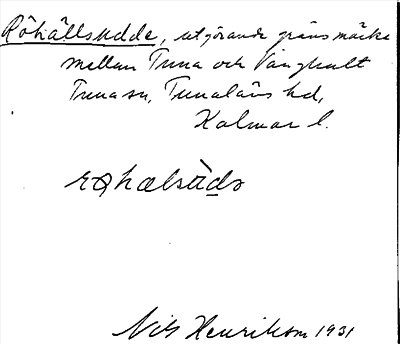 Röhällsudde, utgörande gränsmärke
mellan Tuna och Vånghult
Tuna sn, Tunaläns hd,
Kalmar l.
Nils Henrikson 1931